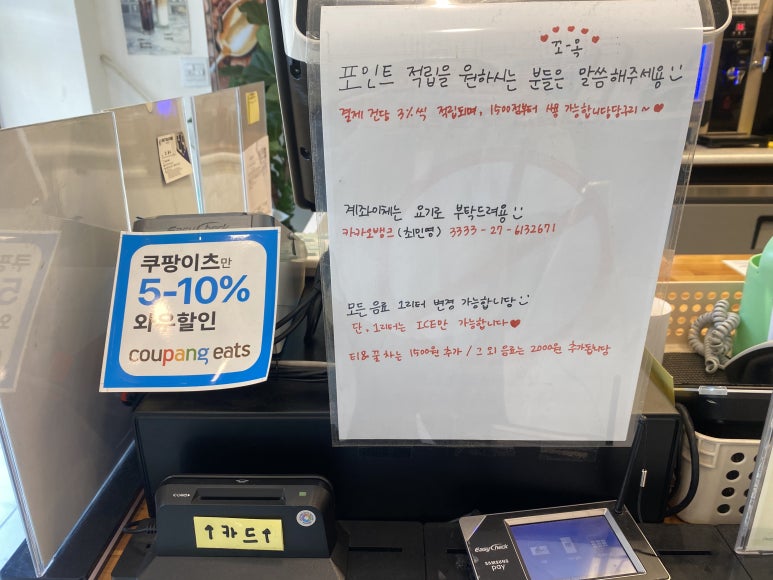 꼬-옥
포인트 적립을 원하시는 분들은 말씀해주세용
결제 건당 3%씩 적립되며, 1500점부터 사용 가능합니당당구리~
계좌이체는 요기로 부탁드려용
카카오뱅크 (최민영) 3333-27-6132671
모든 음료 1리터 변경 가능합니당
단, 1리터는 ICE만 가능합니다
티&꿀 차는 1500원 추가 / 그 외 음료는 2000원 추가됩니당
EasyCheck
쿠팡이츠만
5-10%
와우할인
coupang eats
↑카드↑
EasyCheck
SAMSUNG
pay